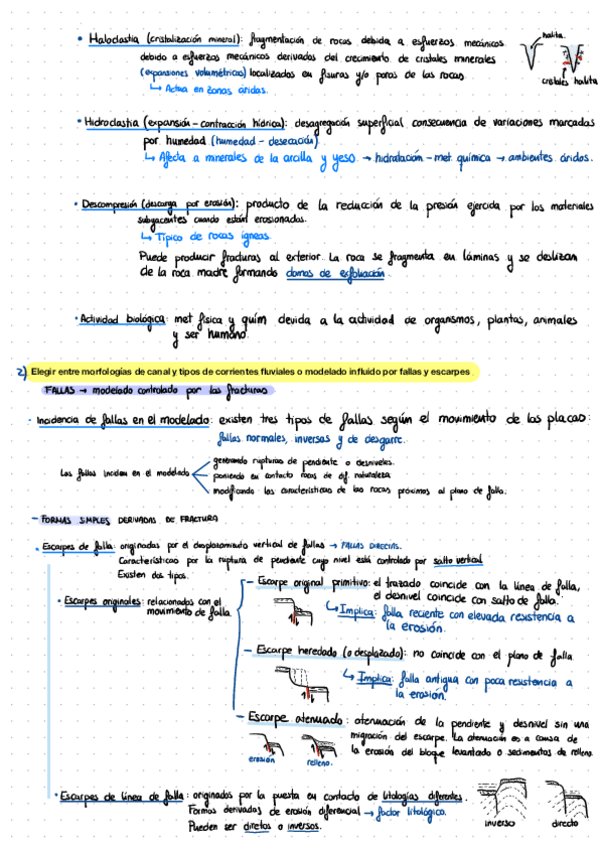 • Haloclastia (cristalización mineral): fragmentación de rocas debida a esfuerzos mecánicos
debido a esfuerzos mecánicos derivados del crecimiento de cristales minerales
(expansiones volumétricas) localizados en fisuras y/o poros de las rocas
↳ Actúa en zonas áridas.
halita.
cristales halita
• Hidroclastia (expansión - contracción hídrica): desagregación superficial consecuencia de variaciones marcadas
por humedad (humedad - desecación)
↳ Afecta a minerales de la arcilla y yeso → hidratación - met. química → ambientes áridos.
• Descompresión (descarga por erosión): producto de la reducción de la presión ejercida por los materiales
subyacentes cuando están erosionados.
↳ Típico de rocas ígneas.
Puede producir fracturas al exterior. La roca se fragmenta en láminas y se deslizan
de la roca madre formando domos de exfoliación.
• Actividad biológica: met física y quím devida a la actividad de organismos, plantas, animales
y ser humano.
2) Elegir entre morfologías de canal y tipos de corrientes fluviales o modelado influido por fallas y escarpes
FALLAS → modelado controlado por las fracturas
• Incidencia de fallas en el modelado: existen tres tipos de fallas según el movimiento de las placas:
fallas normales, inversas y de desgarre.
Las fallas inciden en el modelado
generando rupturas de pendiente o desniveles.
poniendo en contacto rocas de dif naturaleza
modificando las características de las rocas próximas al plano de falla.
- FORMAS SIMPLES DERIVADAS DE FRACTURA
• Escarpes de falla: originadas por el desplazamiento vertical de fallas → FALLAS DIRECTAS.
Característicos por la ruptura de pendiente cuyo nivel está controlado por salto vertical
Existen dos tipos.
• Escarpes originales: relacionados con el
movimiento de falla.
- Escarpe original primitivo: el trazado coincide con la línea de falla,
el desnivel coincide con salto de falla.
↳ Implica: falla reciente con elevada resistencia a
la erosión.
- Escarpe heredado (o desplazado): no coincide con el plano de falla
↳ Implica: falla antigua con poca resistencia a
la erosión.
- Escarpe atenuado: atenuación de la pendiente y desnivel sin una
migración del escarpe. La atenuación es a causa de
la erosión del bloque levantado o sedimentos de relleno.
erosión
relleno.
• Escarpes de línea de falla: originados por la puesta en contacto de litologías diferentes.
Formas derivadas de erosión diferencial → factor litológico.
Pueden ser diretos o inversos.
inverso
directo